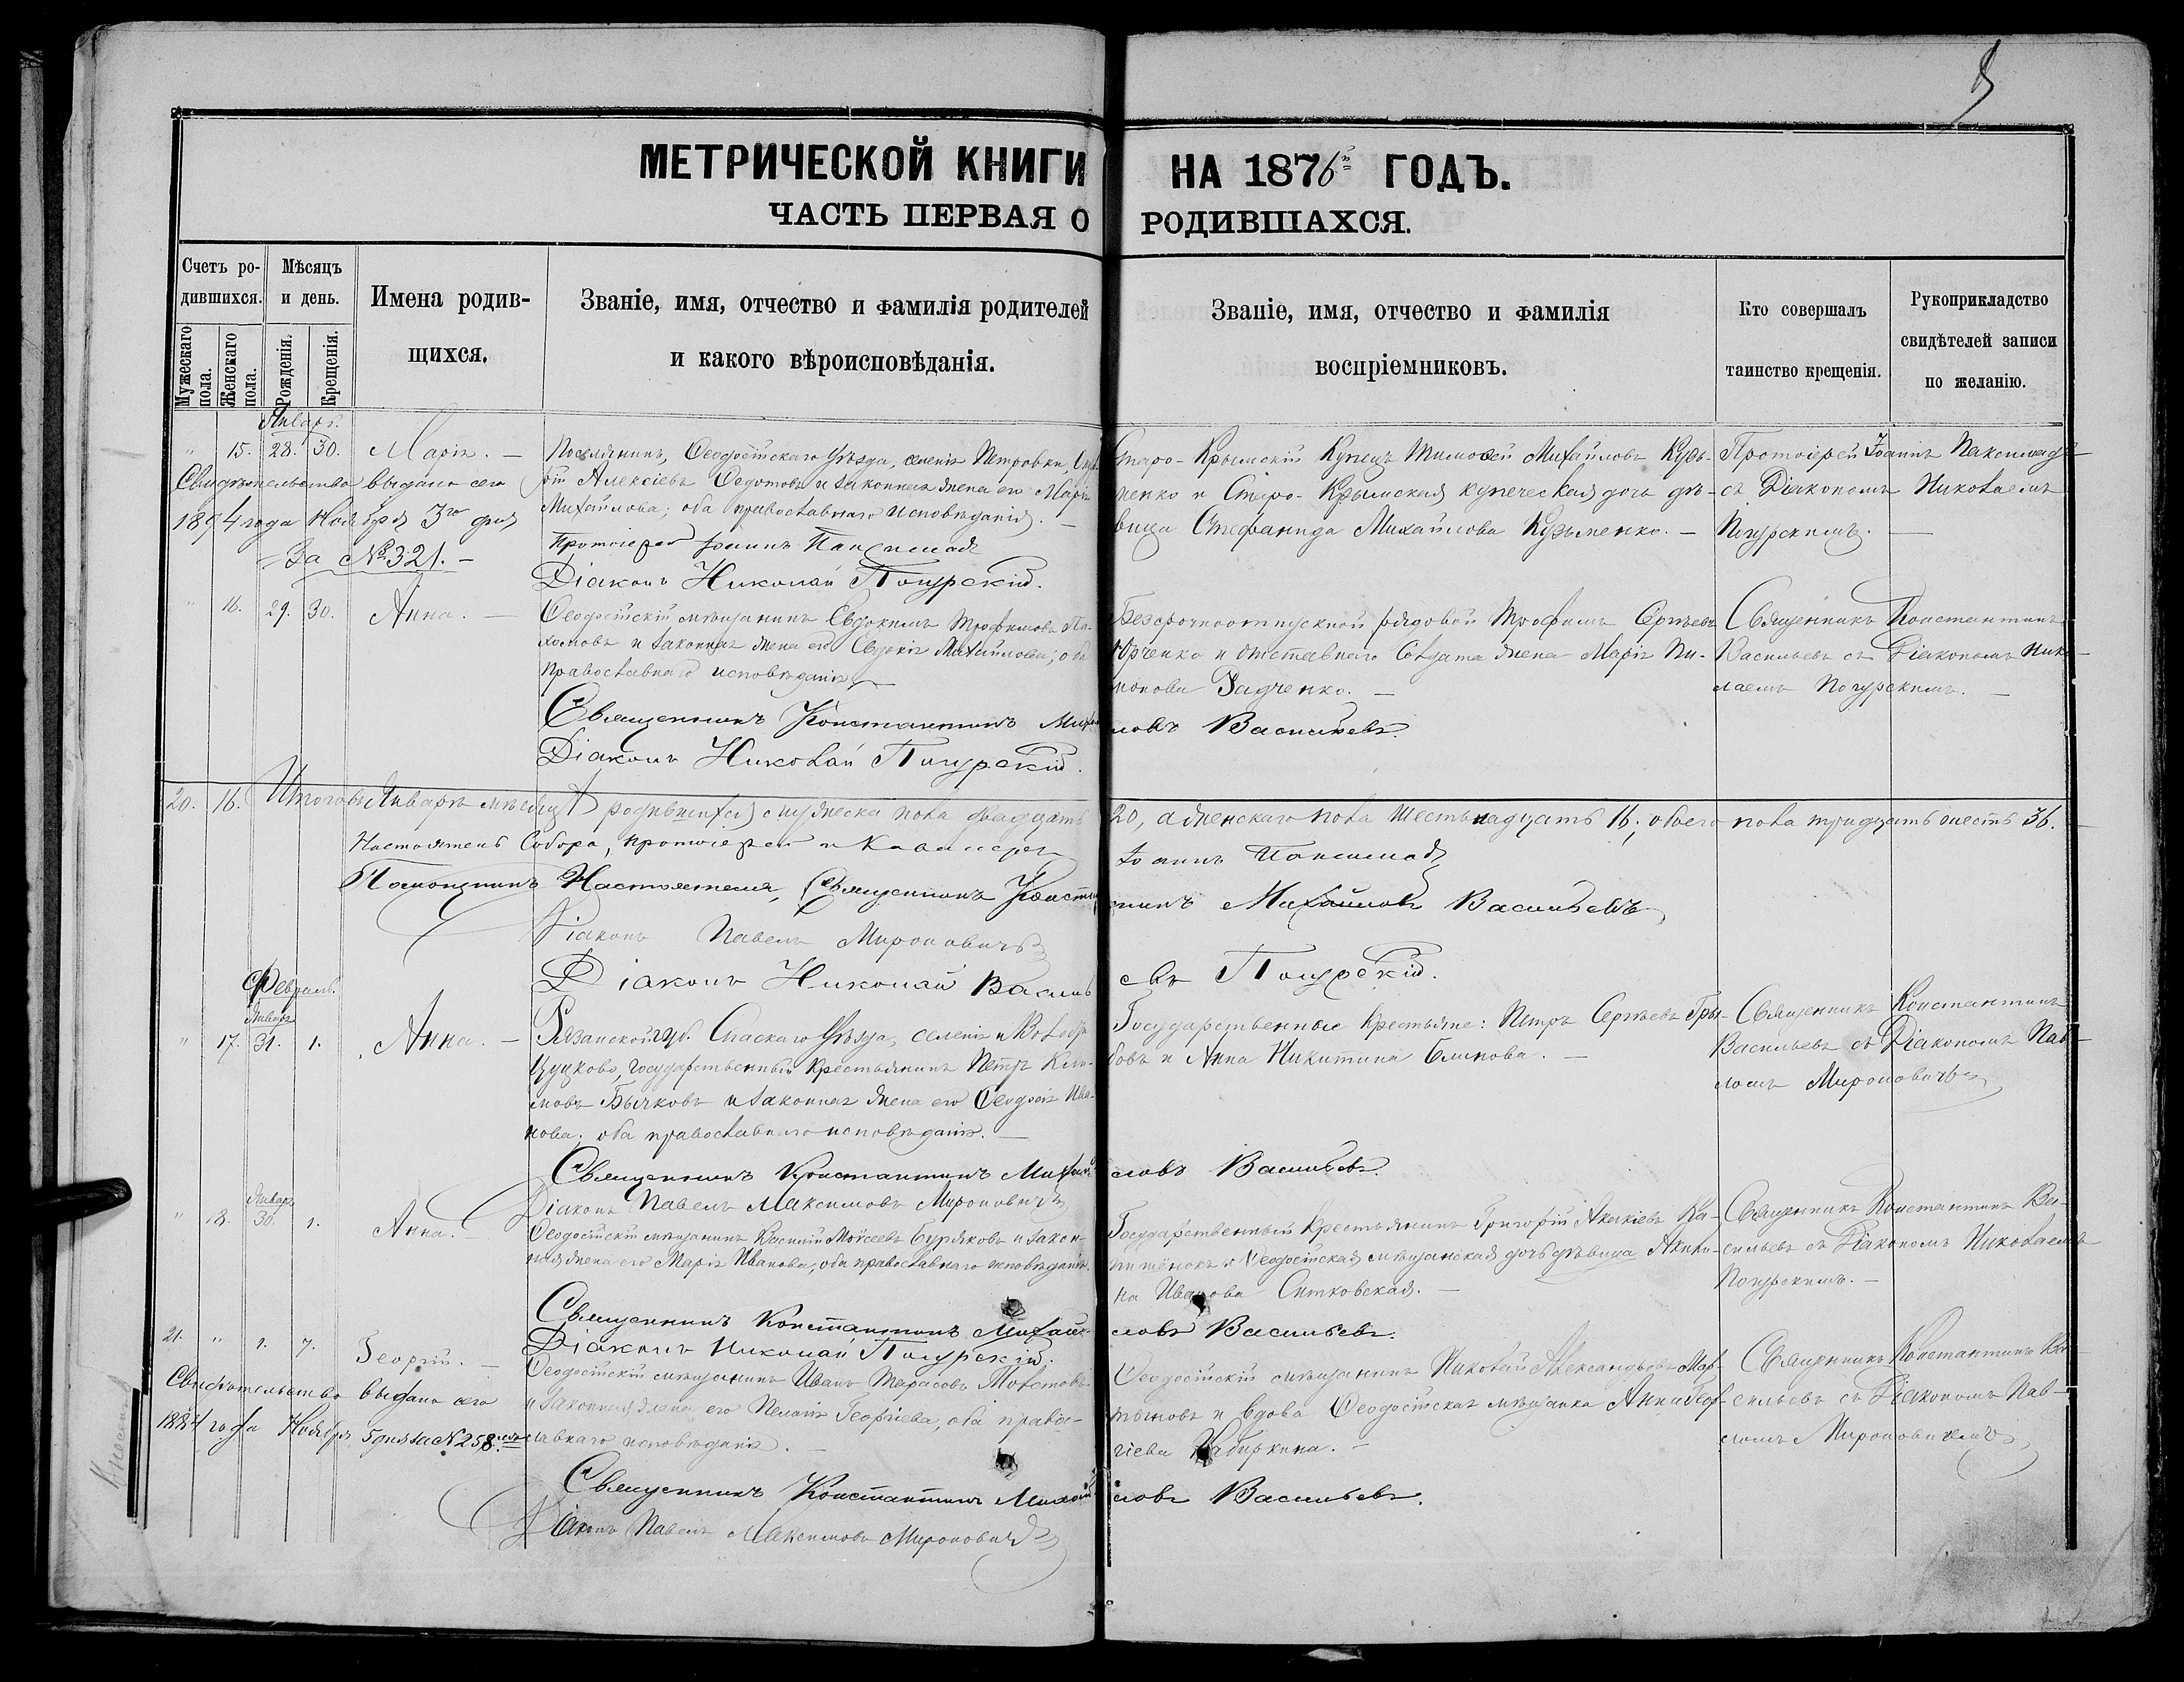 МЕТРИЧЕСКОЙ КНИГИ НА 1876й ГОДЪ.
ЧАСТЬ ПЕРВАЯ О РОДИВШАХСЯ.
Счетъ родившихся.
Мужескаго пола.
Женскаго пола.
Мѣсяцъ и день.
Рожденія.
Крещенія.
Имена родившихся.
Званіе, имя, отчество и фамилія родителей
и какого вѣроисповѣданія.
Званіе, имя, отчество и фамилія
воспріемниковъ.
Кто совершалъ
таинство крещенія.
Рукоприкладство
свидѣтелей записи
по желанію.
Январь.
" 15. 28. 30. Марія. —
Поселянинъ, Ѳеодосійскаго Уѣзда, селенія Петровки,
Алексіевъ Ѳедотовъ и законная жена его Марія
Михайлова; оба православнаго исповѣданія. —
Протоіерей Іоаннъ
Діаконъ Николай
Старо-Крымскій Купецъ Тимоѳей Михайловъ Кузь-
менко и Старо-Крымская купеческая дочь дѣ-
вица Стефанида Михайлова Кузьменко. —
Протоіерей Іоаннъ
съ Діакономъ Николаемъ
Свидѣтельство выдано сего
1894 года Ноября 3го дня
За № 321. —
" 16. 29. 30. Анна. —
Ѳеодосійскій мѣщанинъ Евдокимъ Трофимовъ Па-
хомовъ и законная жена его Евдокія Михайлова; оба
православнаго исповѣданія. —
Священникъ Константинъ Михайловъ Васильевъ.
Діаконъ Николай
Безсрочноотпускной рядовой Трофимъ Сергѣевъ
Юрченко и отставнаго Солдата жена Марія
Задченко. —
Священникъ Константинъ
Васильевъ съ Діакономъ Нико-
лаемъ
20. 16. Итого въ Январѣ мѣсяцѣ родившихся мужеска пола двадцать 20, а женскаго пола шестьнадцать 16; обоего пола тридцать шесть 36.
Настоятель Собора, протоіерей и Кавалеръ Іоаннъ
Помощникъ Настоятеля, Священникъ Константинъ Михайловъ Васильевъ
Діаконъ Павелъ Мироновичъ
Діаконъ Николай Васильевъ
Февраль.
Январь
" 17. 31. 1. Анна. —
Рязанской губ. Спаскаго Уѣзда, селенія
государственный крестьянинъ Петръ Кли-
мовъ Бычковъ и законная жена его Ѳеодосія Ива-
нова; оба православнаго исповѣданія. —
Священникъ Константинъ Михайловъ Васильевъ.
Діаконъ Павелъ Максимовъ Мироновичъ
Государственные крестьяне: Петръ Сергѣевъ Гры-
бовъ и Анна Никитина Блинова. —
Священникъ Константинъ
Васильевъ съ Діакономъ Пав-
ломъ Мироновичемъ
Январь
" 18. 30. 1. Анна. —
Ѳеодосійскій мѣщанинъ Василій Моѵсеевъ Буряковъ и закон-
ная жена его Марія Иванова, оба православнаго исповѣданія.
Священникъ Константинъ Михайловъ Васильевъ.
Діаконъ Николай
Государственный крестьянинъ Григорій Акакіевъ
и Ѳеодосійская мѣщанская дочь дѣвица Акили-
на Иванова Ситковская. —
Священникъ Константинъ Ва-
сильевъ съ Діакономъ Николаемъ
21. " 1. 7. Георгій. —
Ѳеодосійскій мѣщанинъ Иванъ Тарасовъ
и законная жена его Пелагія Георгіева, оба право-
славнаго исповѣданія. —
Священникъ Константинъ Михайловъ Васильевъ.
Діаконъ Павелъ Максимовъ Мироновичъ
Ѳеодосійскій мѣщанинъ Николай Александровъ Мар-
тыновъ и вдова Ѳеодосійская мѣщанка Анна Геор-
гіева
Священникъ Константинъ Ва-
сильевъ съ Діакономъ Пав-
ломъ Мироновичемъ
Свидѣтельство выдано сего
1884 года Ноября 5 дня за № 258.